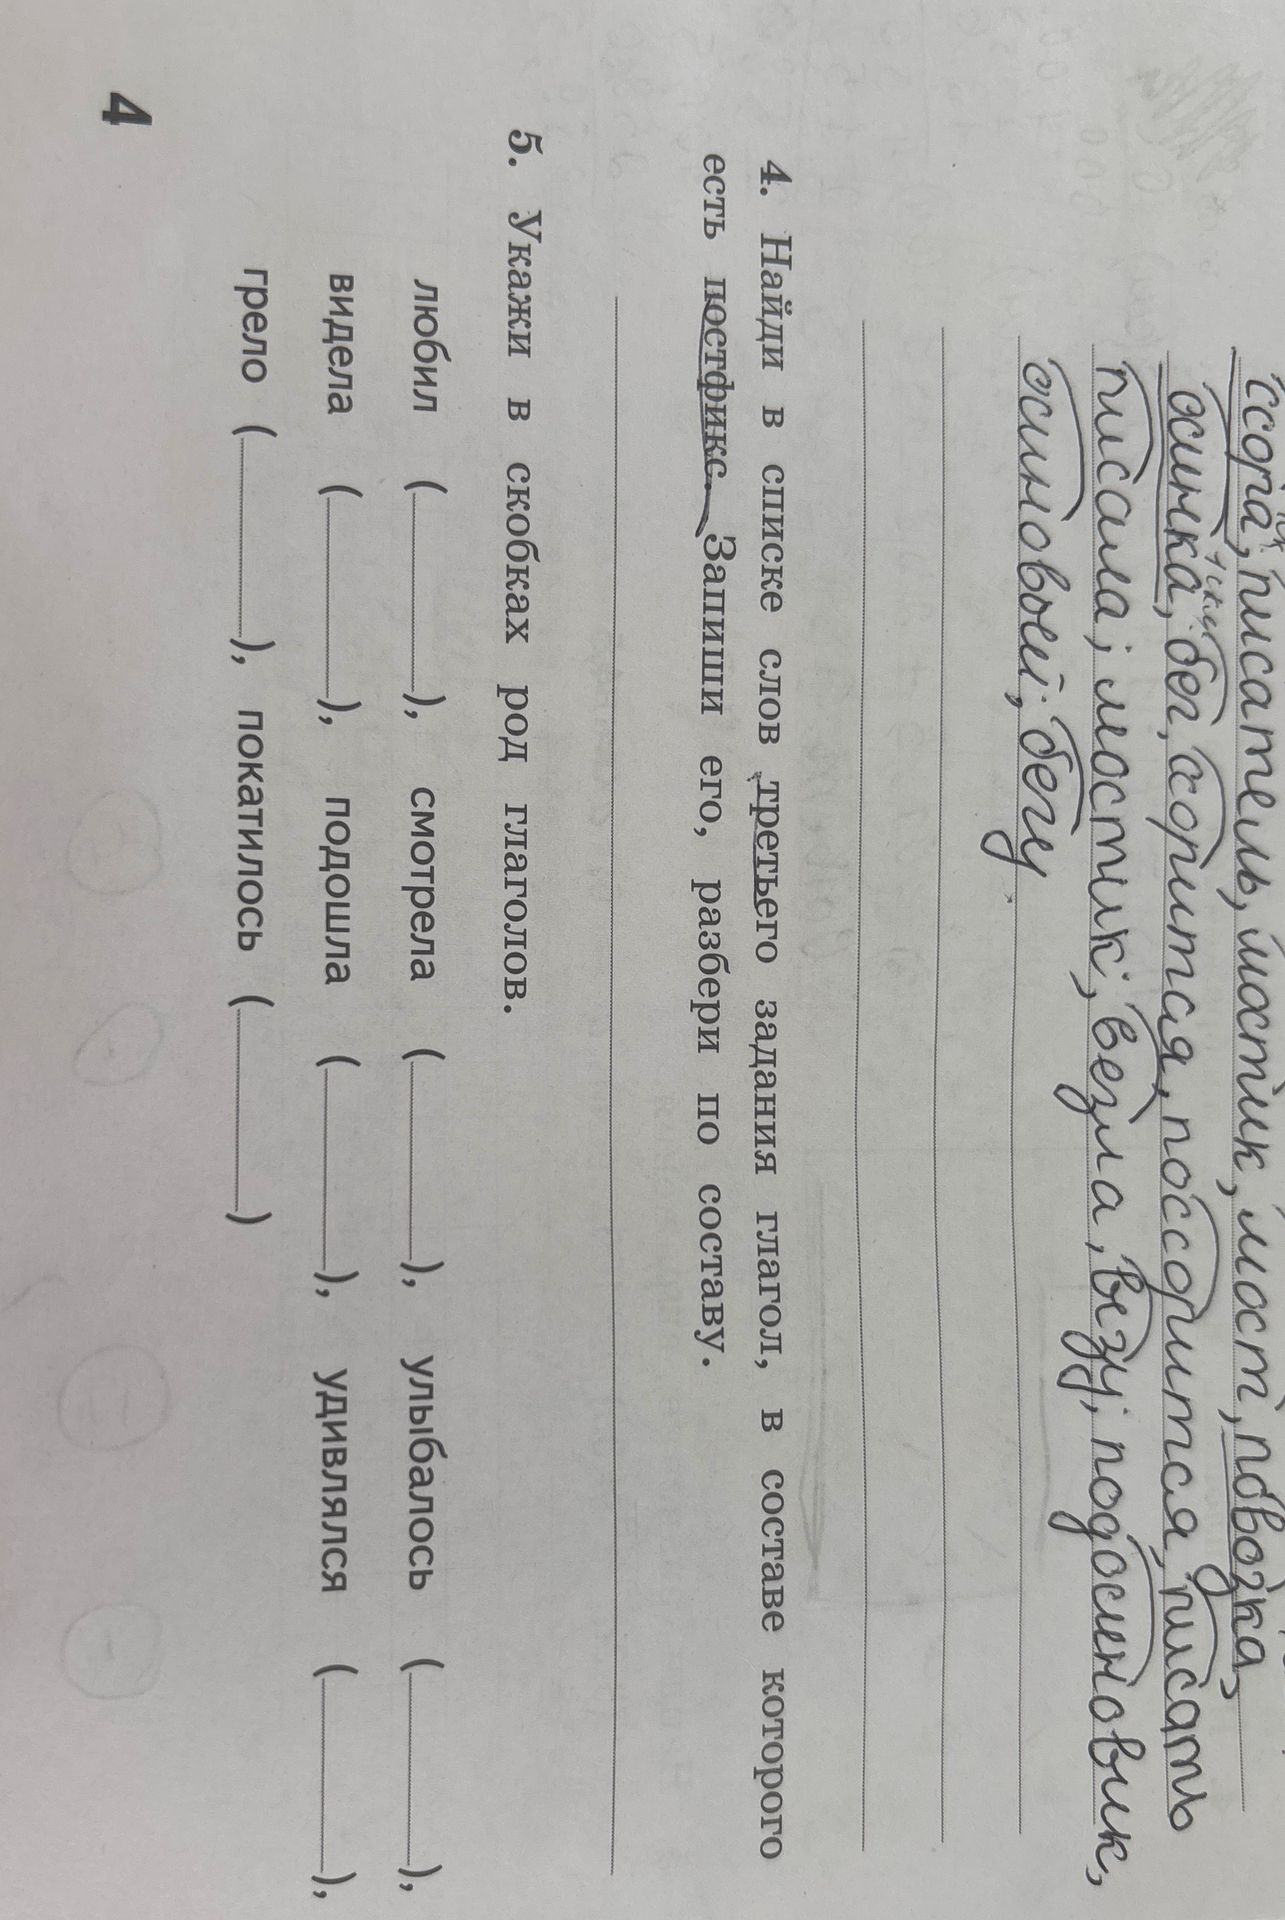 ссора, писатель, мостик, мост, повозка,
осинка, бег, ссорится, поссорится, писать
писала; мостик; везла, везу; подосиновик,
осиновый; бегу.
4. Найди в списке слов третьего задания глагол, в составе которого
есть постфикс. Запиши его, разбери по составу.
5. Укажи в скобках род глаголов.
любил (), смотрела (), улыбалось (),
видела (), подошла (), удивлялся (),
грело (), покатилось ()
4